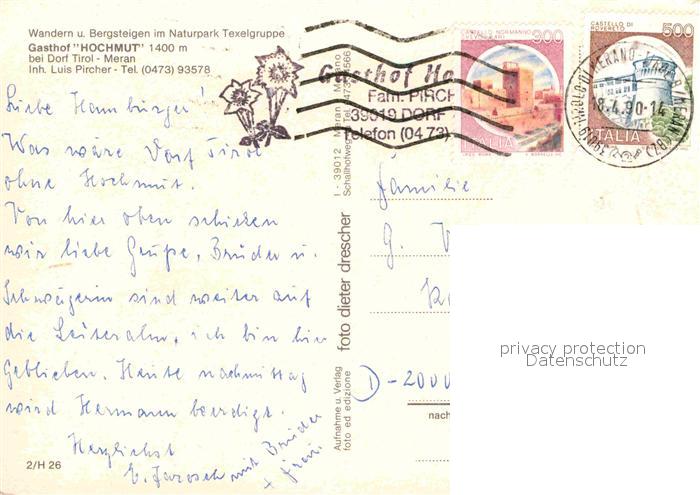 Wandern u. Bergsteigen im Naturpark Texelgruppe
Gasthof "HOCHMUT" 1400 m
bei Dorf Tirol - Meran
Inh. Luis Pircher - Tel. (0473) 93578
Liebe Hamburger!
Was wäre Dorf Tirol
ohne Hochmut.
Von hier oben schicken
wir liebe Grüße, Bruder u.
Schwägerin sind weiter auf
die Leiteralm, ich bin hier
geblieben. Heute nachmittag
wird Hermann beerdigt.
Herzlichst
E. Jarosch mit Bruder
+ Frau.
2/H 26
Gasthof Ho
Fam. PIRCH
39019 DORF
Telefon (0473)
CASTELLO NORMANNO
SVEVO BARI
300
ITALIA
CASTELLO DI
ROVERETO
500
ITALIA
18.4.90-14
I - 39012 Meran - Merano
Schallhofweg
foto dieter drescher
Aufnahme u. Verlag
foto ed edizione
Familie
G.
D-2000
nach
privacy protection
Datenschutz